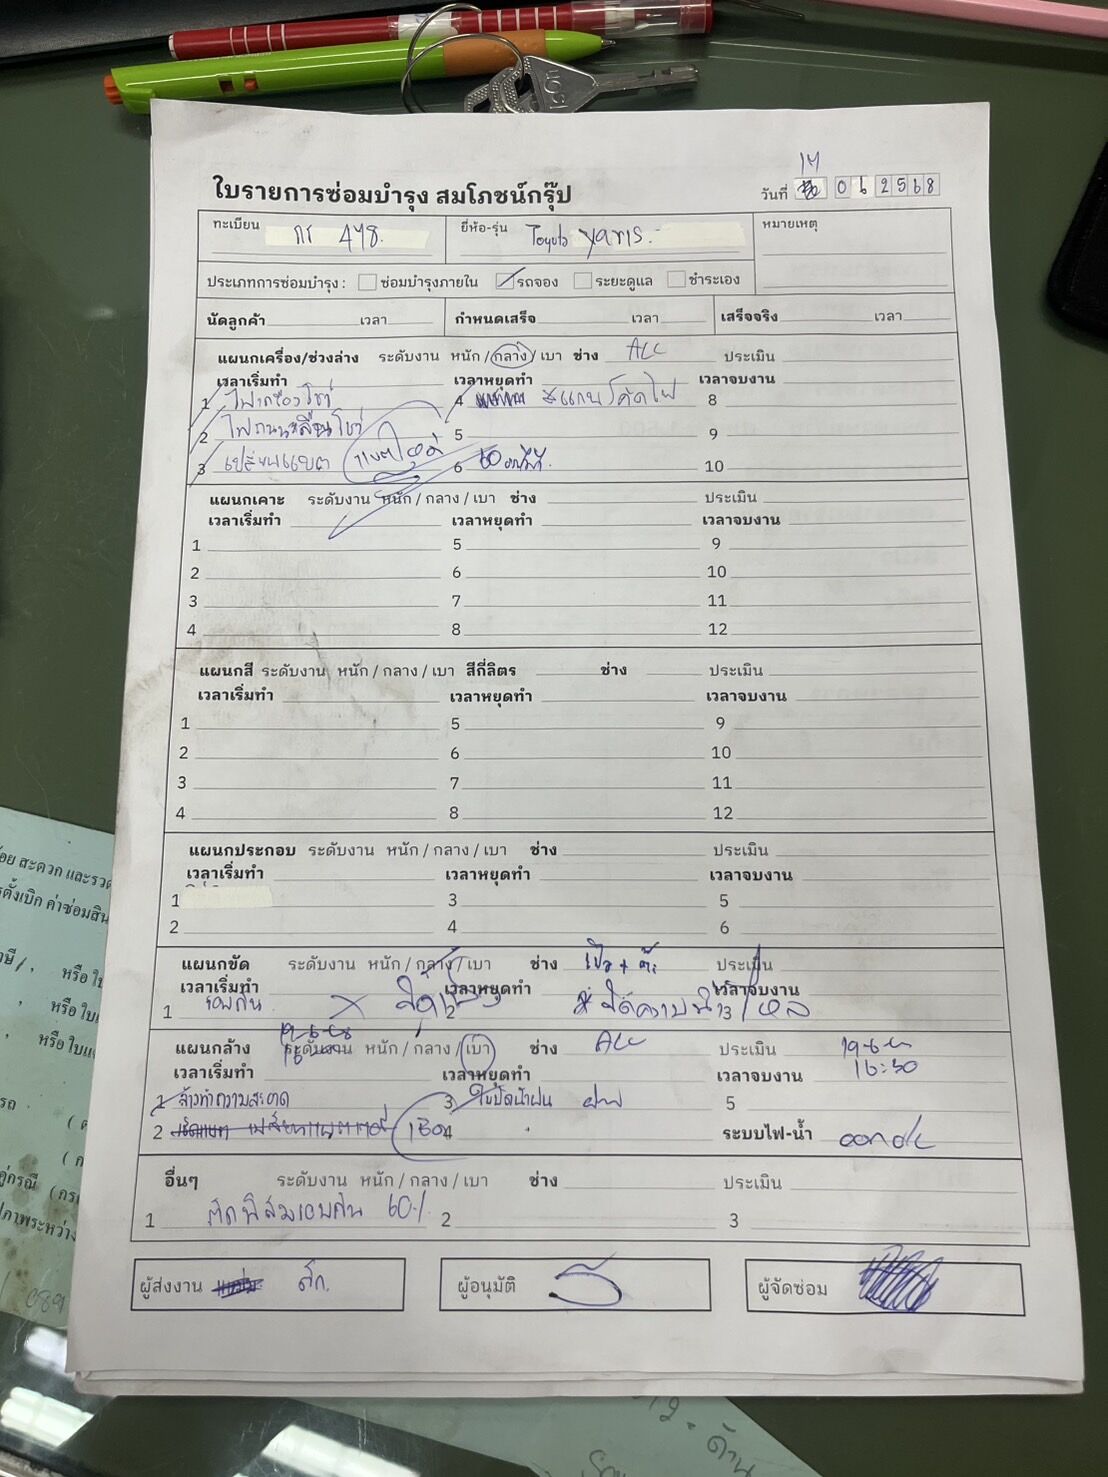 17
ใบรายการซ่อมบำรุง สมโภชน์กรุ๊ป
วันที่ 0 6 2 5 6 8
ทะเบียน กา 478.
ยี่ห้อ-รุ่น Toyota Yaris.
หมายเหตุ
ประเภทการซ่อมบำรุง : ซ่อมบำรุงภายใน รถจอง ระยะดูแล ชำระเอง
นัดลูกค้า เวลา กำหนดเสร็จ เวลา เสร็จจริง เวลา
แผนกเครื่อง/ช่วงล่าง ระดับงาน หนัก / กลาง / เบา ช่าง ALL ประเมิน
เวลาเริ่มทำ เวลาหยุดทำ เวลาจบงาน
1 ไฟเครื่องโชว์ 4 สแกนโค้ดไฟ 8
2 ไฟถนนลื่นโชว์ 5 9
3 เปลี่ยนแบต 6 60 10
แผนกเคาะ ระดับงาน หนัก / กลาง / เบา ช่าง ประเมิน
เวลาเริ่มทำ เวลาหยุดทำ เวลาจบงาน
1 5 9
2 6 10
3 7 11
4 8 12
แผนกสี ระดับงาน หนัก / กลาง / เบา สีกี่ลิตร ช่าง ประเมิน
เวลาเริ่มทำ เวลาหยุดทำ เวลาจบงาน
1 5 9
2 6 10
3 7 11
4 8 12
แผนกประกอบ ระดับงาน หนัก / กลาง / เบา ช่าง ประเมิน
เวลาเริ่มทำ เวลาหยุดทำ เวลาจบงาน
1 3 5
2 4 6
แผนกขัด ระดับงาน หนัก / กลาง / เบา ช่าง ประเมิน
เวลาเริ่มทำ เวลาหยุดทำ เวลาจบงาน
1 รอบคัน 2 3
แผนกล้าง ระดับงาน หนัก / กลาง / เบา ช่าง ALL ประเมิน
เวลาเริ่มทำ เวลาหยุดทำ เวลาจบงาน 16:30
1 ล้างทำความสะอาด 3 ใบปัดน้ำฝน 5
2 4 ระบบไฟ-น้ำ
อื่นๆ ระดับงาน หนัก / กลาง / เบา ช่าง ประเมิน
1 ติดฟิล์มรอบคัน 60% 2 3
ผู้ส่งงาน
ผู้อนุมัติ
ผู้จัดซ่อม